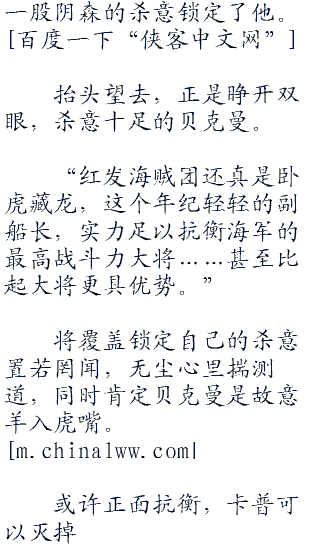 一股阴森的杀意锁定了他。
[百度一下“侠客中文网”]
抬头望去，正是睁开双
眼，杀意十足的贝克曼。
“红发海贼团还真是卧
虎藏龙，这个年纪轻轻的副
船长，实力足以抗衡海军的
最高战斗力大将……甚至比
起大将更具优势。”
将覆盖锁定自己的杀意
置若罔闻，无尘心里揣测
道，同时肯定贝克曼是故意
羊入虎嘴。
[m.chinalww.com|
或许正面抗衡，卡普可
以灭掉